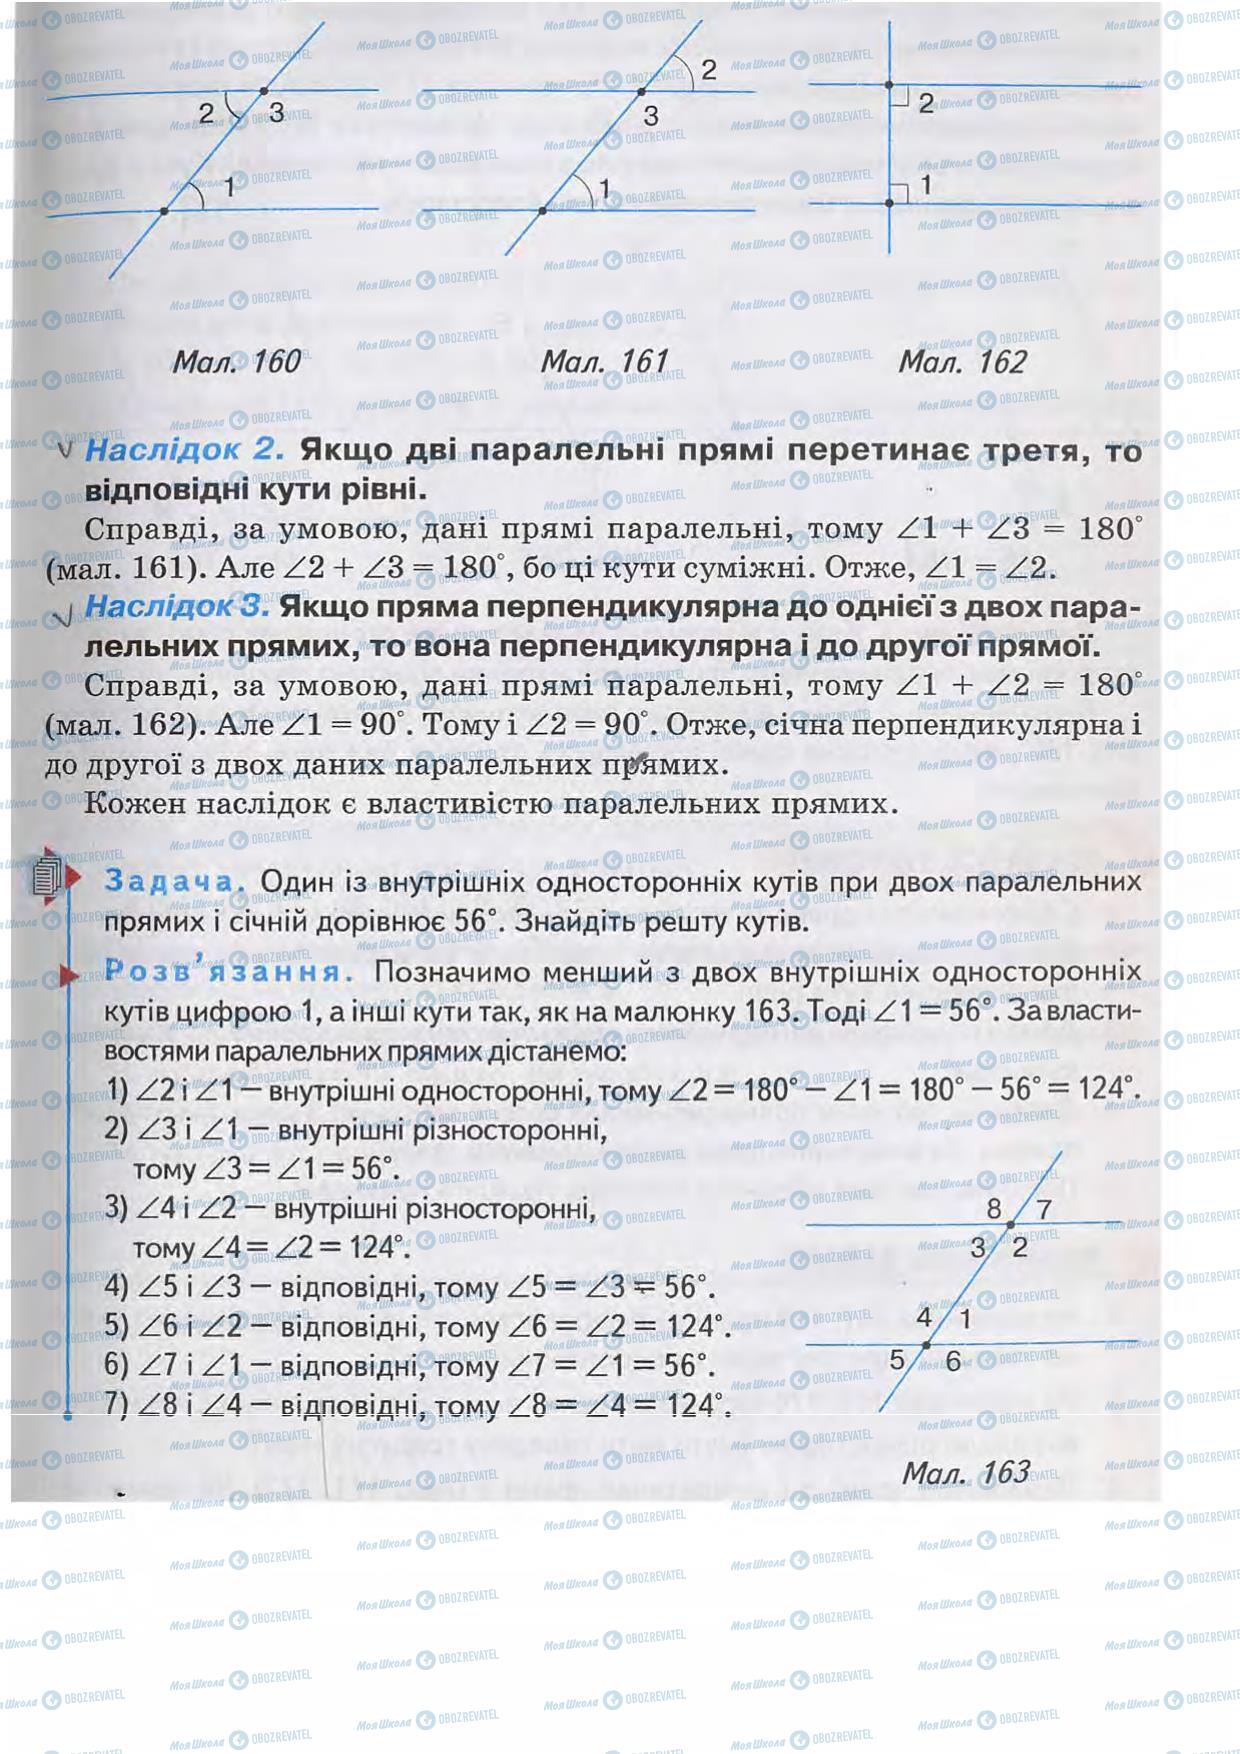 2 3
1
2
3
1
2
1
Мал. 160 Мал. 161 Мал. 162
Наслідок 2. Якщо дві паралельні прямі перетинає третя, то
відповідні кути рівні.
Справді, за умовою, дані прямі паралельні, тому ∠1 + ∠3 = 180°
(мал. 161). Але ∠2 + ∠3 = 180°, бо ці кути суміжні. Отже, ∠1 = ∠2.
Наслідок 3. Якщо пряма перпендикулярна до однієї з двох пара-
лельних прямих, то вона перпендикулярна і до другої прямої.
Справді, за умовою, дані прямі паралельні, тому ∠1 + ∠2 = 180°
(мал. 162). Але ∠1 = 90°. Тому і ∠2 = 90°. Отже, січна перпендикулярна і
до другої з двох даних паралельних прямих.
Кожен наслідок є властивістю паралельних прямих.
Задача. Один із внутрішніх односторонніх кутів при двох паралельних
прямих і січній дорівнює 56°. Знайдіть решту кутів.
Розв'язання. Позначимо менший з двох внутрішніх односторонніх
кутів цифрою 1, а інші кути так, як на малюнку 163. Тоді ∠1 = 56°. За власти-
востями паралельних прямих дістанемо:
1) ∠2 і ∠1 — внутрішні односторонні, тому ∠2 = 180° — ∠1 = 180° — 56° = 124°.
2) ∠3 і ∠1 — внутрішні різносторонні,
тому ∠3 = ∠1 = 56°.
3) ∠4 і ∠2 — внутрішні різносторонні,
тому ∠4 = ∠2 = 124°.
4) ∠5 і ∠3 — відповідні, тому ∠5 = ∠3 = 56°.
5) ∠6 і ∠2 — відповідні, тому ∠6 = ∠2 = 124°.
6) ∠7 і ∠1 — відповідні, тому ∠7 = ∠1 = 56°.
7) ∠8 і ∠4 — відповідні, тому ∠8 = ∠4 = 124°.
8 7
3 2
4 1
5 6
Мал. 163
Моя Школа OBOZREVATEL